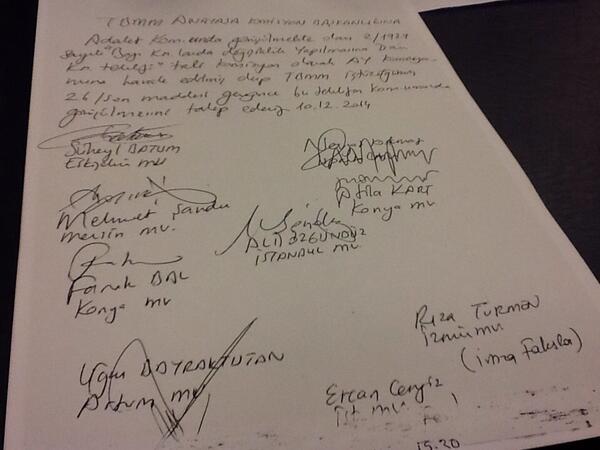 TBMM ANAYASA KOMİSYON BAŞKANLIĞINA
Adalet Kom.unda görüşülmekte olan 2/1929
sayılı "Bazı Kn.larda değişiklik Yapılmasına Dair
Kn. teklifi" tali komisyon olarak AY komisyo-
nuna havale edilmiş olup TBMM içtüzüğünün
26/son maddesi gereğince bu teklifin Kom.unuzda
görüşülmesini talep ederiz 10.12.2014
Süheyl BATUM
Eskişehir mv
Atilla KART
Konya mv.
Mehmet Şandır
Mersin mv.
ALİ ÖZGÜNDÜZ
İSTANBUL mv.
Faruk BAL
Konya mv
Rıza TÜRMEN
İzmir mv.
(imza Faksla)
Uğur BAYRAKTUTAN
Artvin mv
Ercan Cengiz
İst mv.
15.20